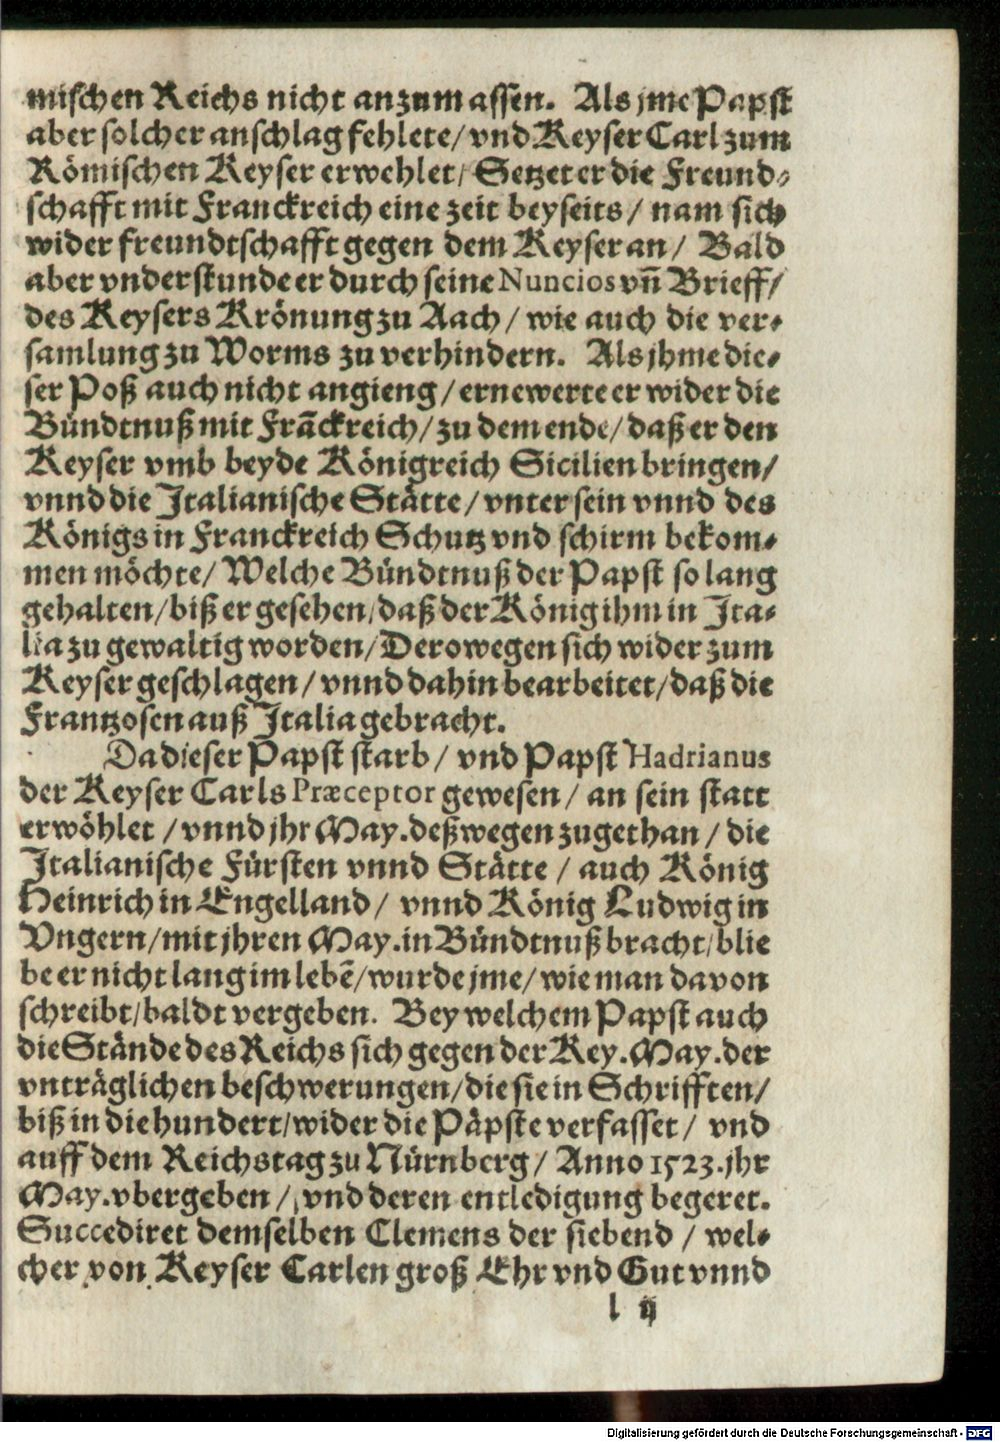 mischen Reichs nicht anzumassen. Als jme Papst
aber solcher anschlag fehlete/ vnd Keyser Carl zum
Römischen Keyser erwehlet/ Setzet er die Freund-
schafft mit Franckreich eine zeit beyseits/ nam sich
wider freundtschafft gegen dem Keyser an/ Bald
aber vnderstunde er durch seine Nuncios vñ Brieff/
des Keysers Krönung zu Aach/ wie auch die ver-
samlung zu Worms zu verhindern. Als jhme die-
ser Poß auch nicht angieng/ ernewerte er wider die
Bündtnuß mit Frāckreich/ zu dem ende/ daß er den
Keyser vmb beyde Königreich Sicilien bringen/
vnnd die Italianische Stätte/ vnter sein vnnd des
Königs in Franckreich Schutz vnd schirm bekom-
men möchte/ Welche Bündtnuß der Papst so lang
gehalten/ biß er gesehen/ daß der König ihm in Ita-
lia zu gewaltig worden/ Derowegen sich wider zum
Keyser geschlagen/ vnnd dahin bearbeitet/ daß die
Frantzosen auß Italia gebracht.
Da dieser Papst starb/ vnd Papst Hadrianus
der Keyser Carls Præceptor gewesen/ an sein statt
erwöhlet/ vnnd jhr May. deßwegen zugethan/ die
Italianische Fürsten vnnd Stätte/ auch König
Heinrich in Engelland/ vnnd König Ludwig in
Vngern/ mit jhren May. in Bündtnuß bracht/ blie
be er nicht lang im lebē/ wurde jme/ wie man davon
schreibt/ baldt vergeben. Bey welchem Papst auch
die Stände des Reichs sich gegen der Key. May. der
vnträglichen beschwerungen/ die sie in Schrifften/
biß in die hundert/ wider die Päpste verfasset/ vnd
auff dem Reichstag zu Nürnberg/ Anno 1523. jhr
May. vbergeben/ vnd deren entledigung begeret.
Succediret demselben Clemens der siebend/ wel-
cher von Keyser Carlen groß Ehr vnd Gut vnnd
l ij
Digitalisierung gefördert durch die Deutsche Forschungsgemeinschaft - DFG